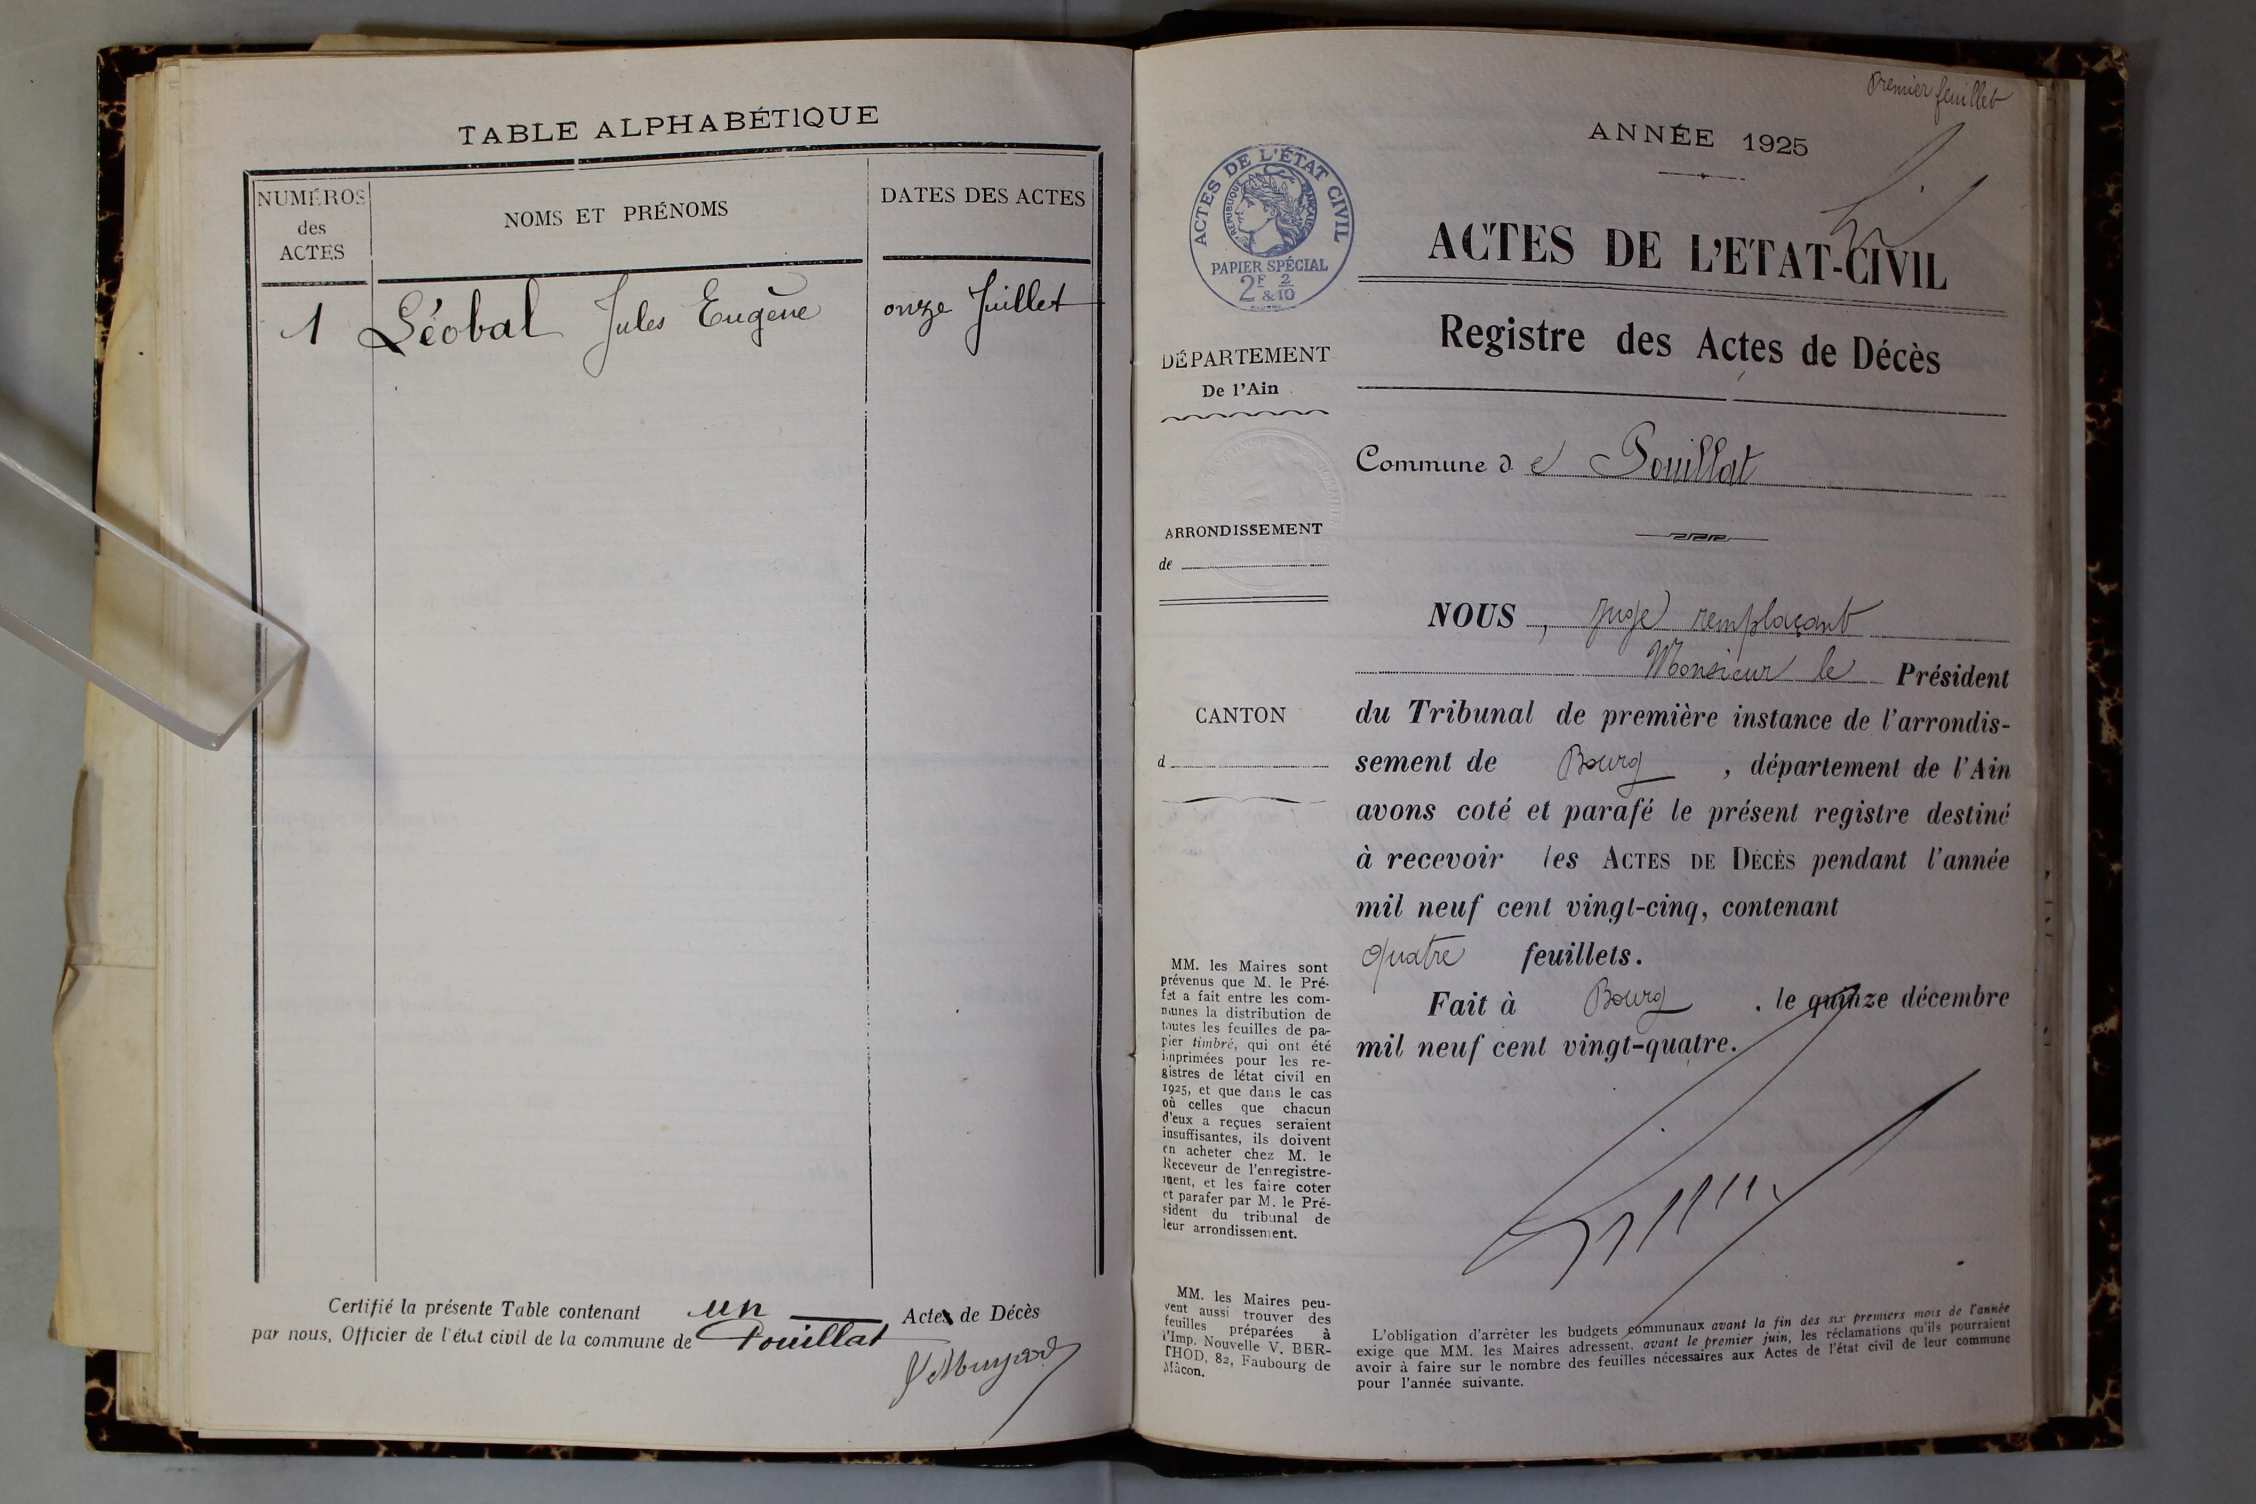 TABLE ALPHABÉTIQUE
NUMÉROS
des
ACTES
NOMS ET PRÉNOMS
DATES DES ACTES
1 Léobal Jules Eugène onze Juillet
Certifié la présente Table contenant un Acte de Décès
par nous, Officier de l'état civil de la commune de Pouillat
Premier feuillet
ANNÉE 1925
ACTES DE L'ÉTAT CIVIL
RÉPUBLIQUE FRANÇAISE
PAPIER SPÉCIAL
2F 2
&10
ACTES DE L'ETAT-CIVIL
Registre des Actes de Décès
DÉPARTEMENT
De l'Ain
Commune de Pouillat
ARRONDISSEMENT
de
CANTON
d
NOUS, Juge remplaçant
Monsieur le Président
du Tribunal de première instance de l'arrondis-
sement de Bourg, département de l'Ain
avons coté et parafé le présent registre destiné
à recevoir les ACTES DE DÉCÈS pendant l'année
mil neuf cent vingt-cinq, contenant
quatre feuillets.
Fait à Bourg, le quinze décembre
mil neuf cent vingt-quatre.
MM. les Maires sont
prévenus que M. le Pré-
fet a fait entre les com-
munes la distribution de
toutes les feuilles de pa-
pier timbré, qui ont été
imprimées pour les re-
gistres de létat civil en
1925, et que dans le cas
où celles que chacun
d'eux a reçues seraient
insuffisantes, ils doivent
en acheter chez M. le
Receveur de l'enregistre-
ment, et les faire coter
et parafer par M. le Pré-
sident du tribunal de
leur arrondissement.
MM. les Maires peu-
vent aussi trouver des
feuilles préparées à
l'Imp. Nouvelle V. BER-
THOD, 82, Faubourg de
Mâcon.
L'obligation d'arrêter les budgets communaux avant la fin des six premiers mois de l'année
exige que MM. les Maires adressent, avant le premier juin, les réclamations qu'ils pourraient
avoir à faire sur le nombre des feuilles nécessaires aux Actes de l'état civil de leur commune
pour l'année suivante.